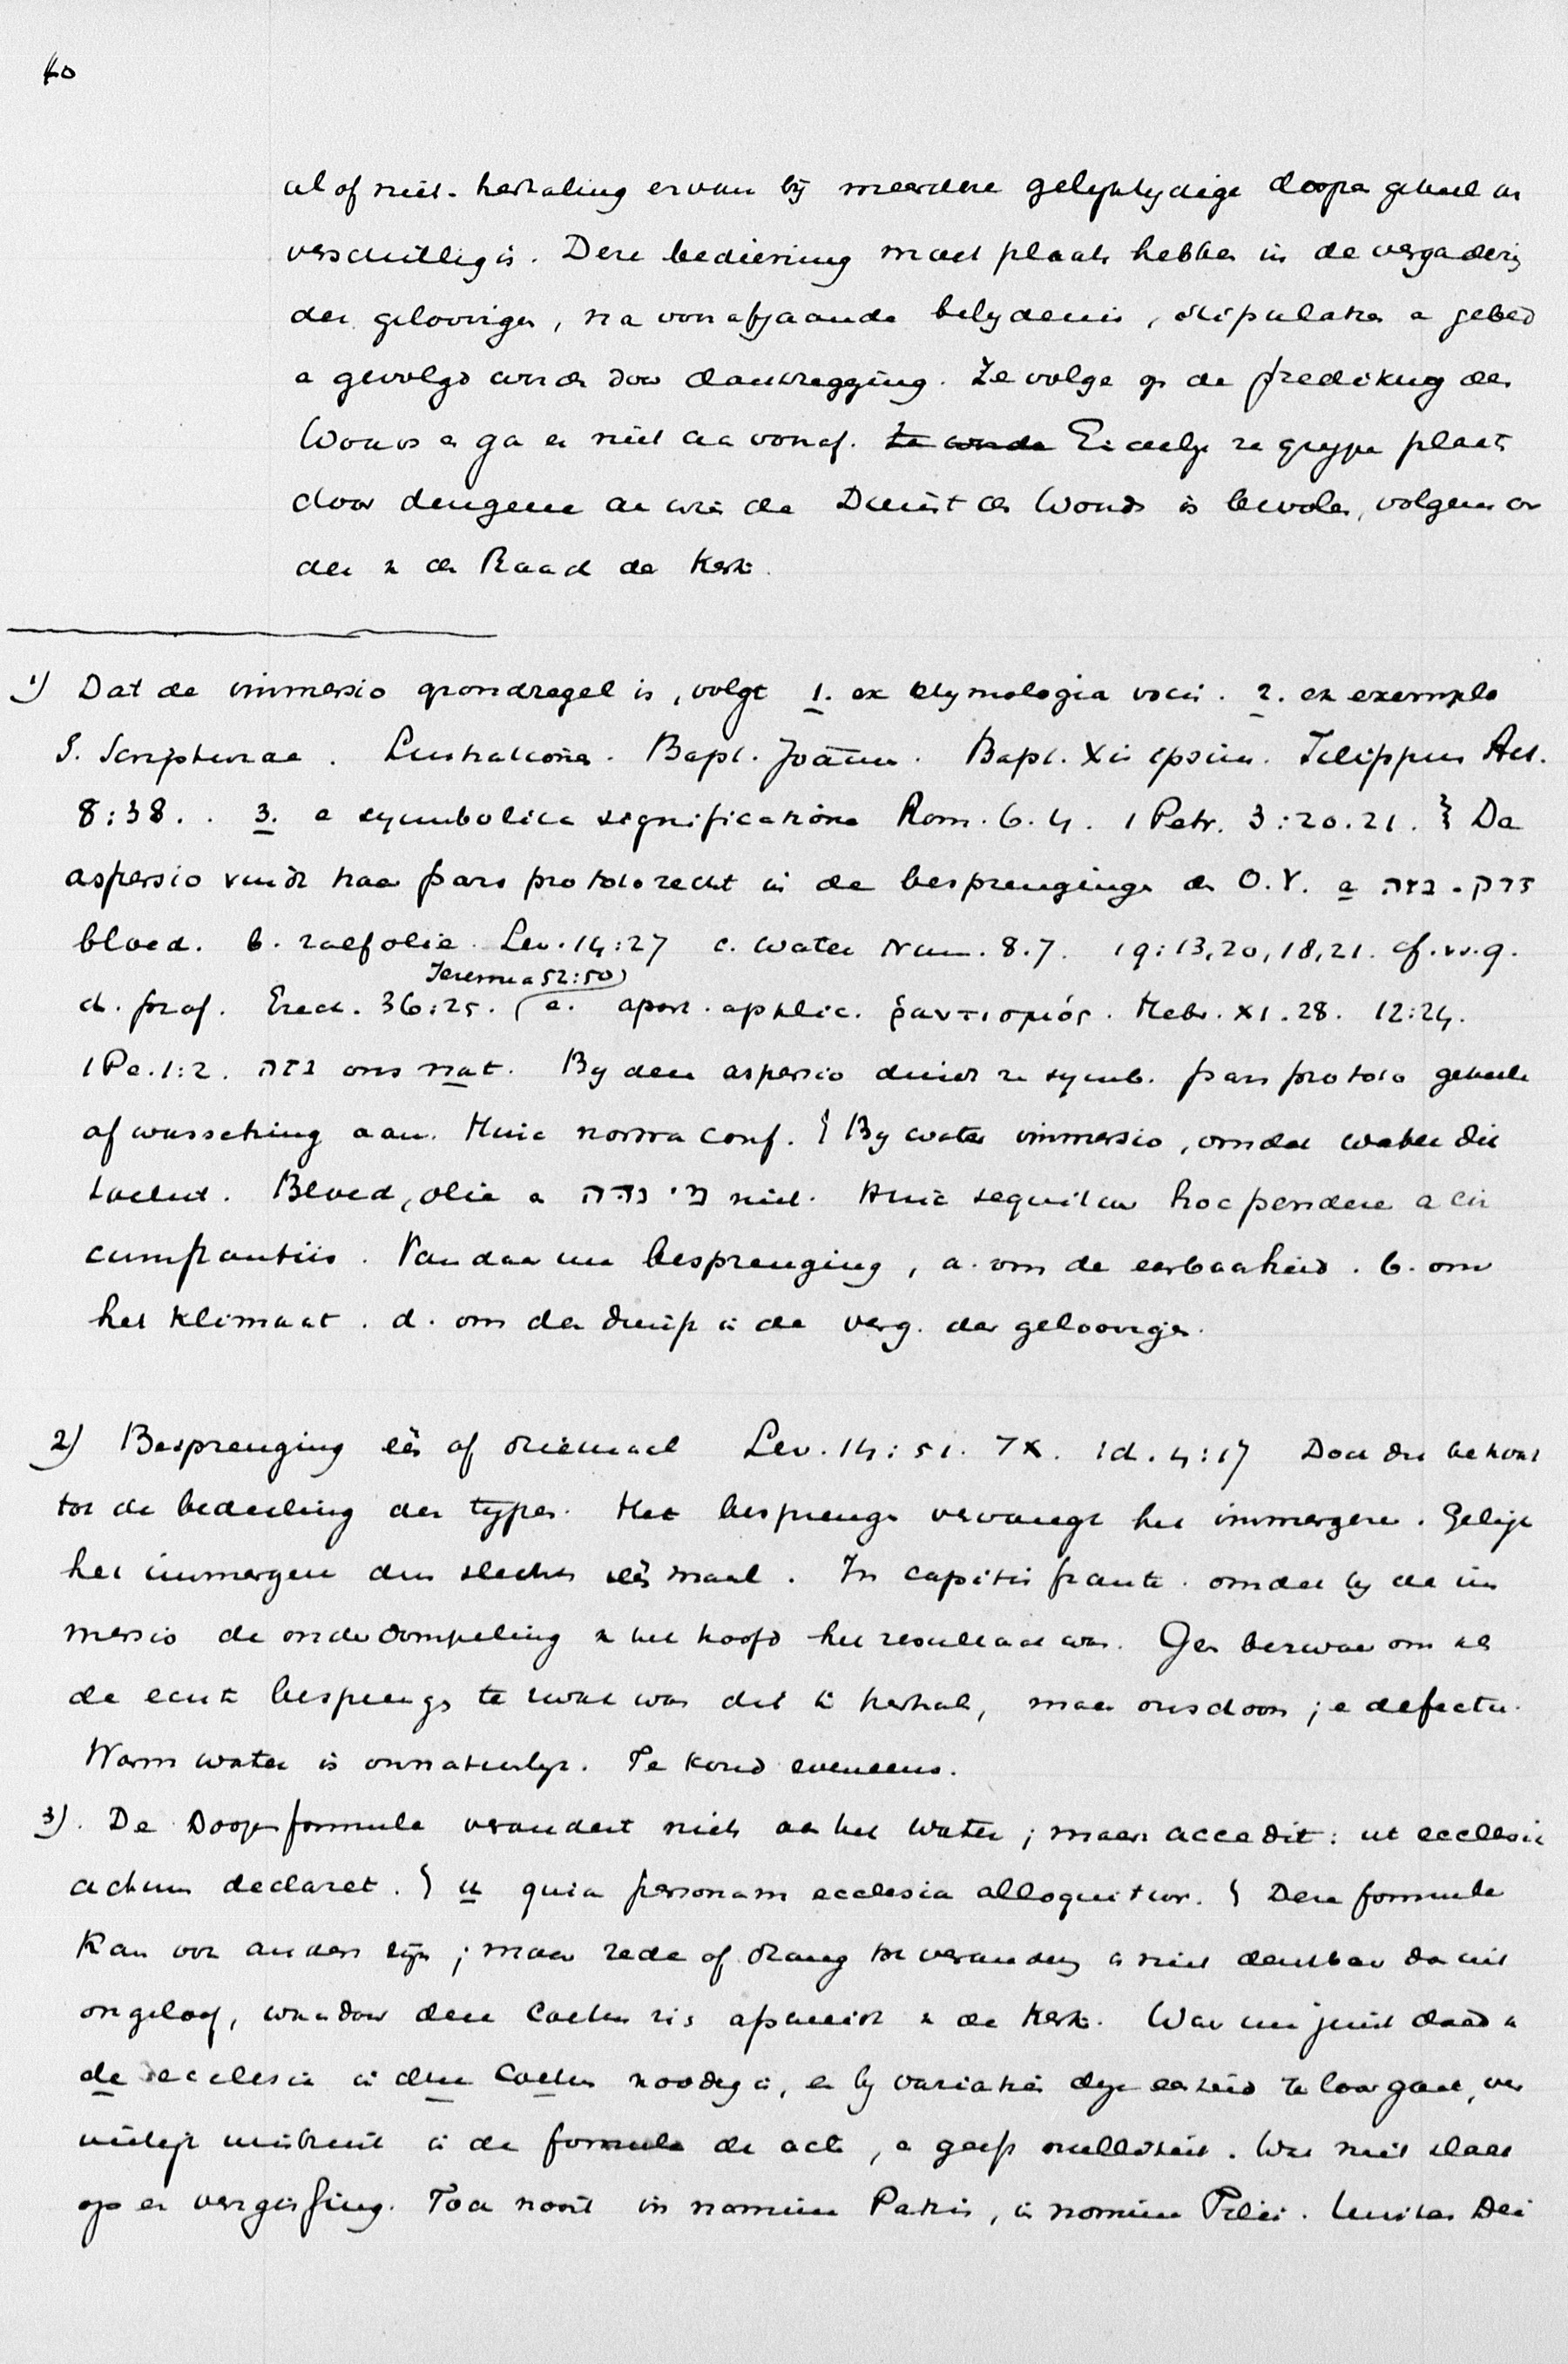 60
al of niet herhaling ervan bij meerdere gelijktijdige doopen geheel on
verschillig is. Deze bediening moet plaats hebben in de vergadering
der geloovigen, na voorafgaande belijdenis, stipulatie en gebed
en gevolgd worden door dankzegging. Ze volge op de prediking des
Woords en ga er niet aan vooraf. Ze worde Eindelijk ze grijpe plaats
door dengene aan wien de Dienst des Woords is bevolen, volgens or
der van den Raad der Kerk.
1) Dat de immersio grondregel is, volgt 1. ex etymologia vocis. 2. ex exemplo
S. Scripturae. Lustrationes. Bapt. Joānn. Bapt. Xi ipsius. Filippus Act.
8:38.. 3. e symbolica significatione Rom. 6.4. 1 Petr. 3:20.21. } De
aspersio vindt haar pars pro toto recht in de besprenginge des O.V. a נזה - זרק
bloed. b. zalfolie. Lev. 14:27 c. water Num. 8.7. 19:13,20,18,21. cf. vs. 9.
Jeremia 52:50)
d. prof. Ezech. 36:25. (e. apost. applic. ῥαντισμός. Hebr. XI.28. 12:24.
1 Pe. 1:2. נזה ons nat. By deze aspersio duidt ze symb. pars pro toto geheele
afwassching aan. Huic norma conf. } By water immersio, omdat water dit
toelaat. Bloed, olie en מי נדה niet. Huic sequitur hoc pendere a cir
cumstantiis. Vandaar nu besprenging, a. om de eerbaarheid. b. om
het klimaat. d. om den doop in de verg. der geloovigen.
2) Besprenging één of driemaal Lev. 14:51. 7X. id. 4:17 Doch dit behoort
tot de bedeeling der types. Het besprenge vervangt het immergere. Gelijk
het immergere dus slechts één maal. In capitis fronte. omdat by de im
mersio de onderdompeling van het hoofd het resultaat was. Geen bezwaar om als
de eerste besprenge te zwak was dit te herhalen, maar ons doen; e defectu.
Warm water is onnatuurlijk. Te koud eveneens.
3). De Doopsformule verandert niets aan het water; maar accedit: ut ecclesia
actum declaret. } et quia personam ecclesia alloquitur. } Deze formule
kan ook anders zijn; maar rede of drang tot verandering is niet denkbaar dan uit
ongeloof, waardoor deze Coetus zich afscheidt van de Kerk. Waar nu juist daad van
de ecclesia in dien Coetus noodig is, en by variatie deze eenheid te loor gaat, ver
nietigt misbruik in de formule de acte, en geeft nulliteit. Wat niet slaat
op een vergissing. Toch nooit in nomine Patris, in nomine Filii. Unitas Dei